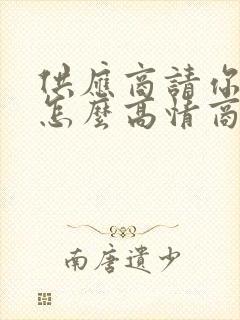 供應商請你
怎麼高情商
南唐遺少